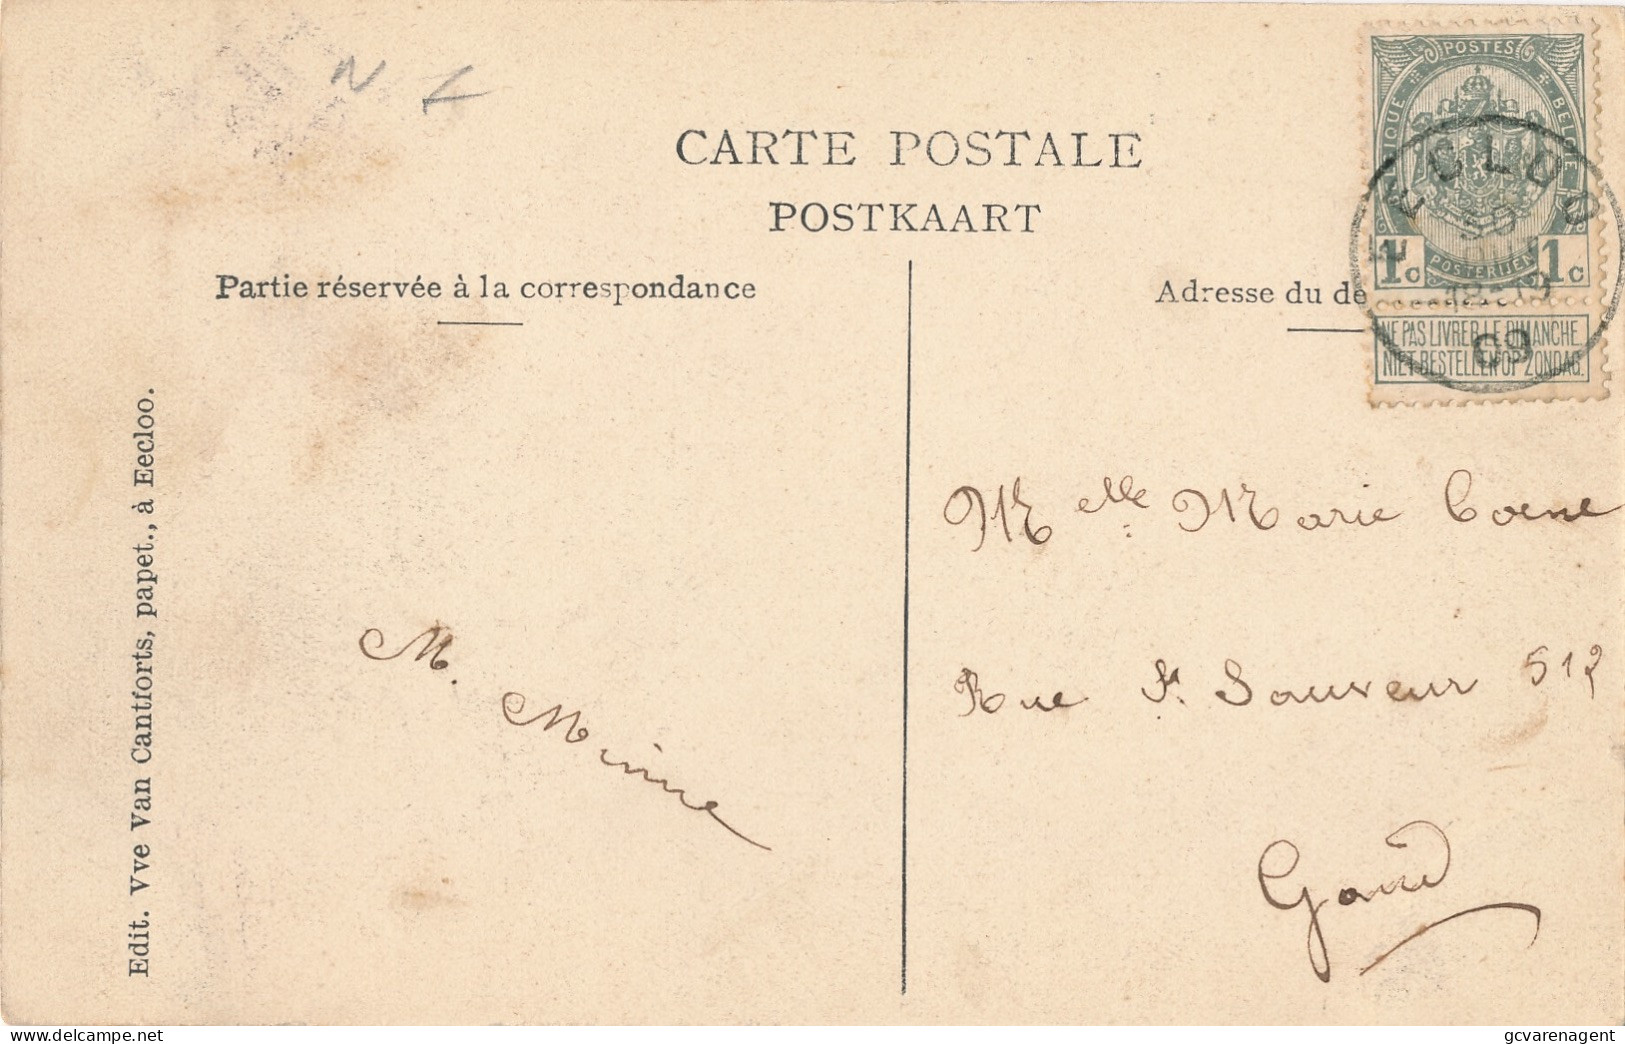 N
CARTE POSTALE
POSTKAART
Partie réservée à la correspondance
Adresse du de
POSTES
BELGIE
POSTERIJEN
1c 1c
NE PAS LIVRER LE DIMANCHE
NIET BESTELLEN OP ZONDAG.
EECLOO
18-19
09
Edit. Vve Van Cantforts, papet., à Eecloo.
M. Minne
Melle. Marie Coene
Rue St. Sauveur 512
Gand
delcampe.net
gcvarenagent